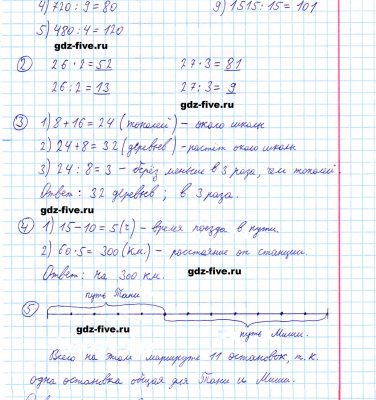 4) 720 : 9 = 80 9) 1515 : 15 = 101
5) 480 : 4 = 120
gdz-five.ru
2 26 · 2 = 52 27 · 3 = 81
26 : 2 = 13 27 : 3 = 9
gdz-five.ru
3 1) 8 + 16 = 24 (тополей) – около школы
2) 24 + 8 = 32 (деревьев) – растет около школы
3) 24 : 8 = 3 – берёз меньше в 3 раза, чем тополей.
Ответ: 32 деревьев; в 3 раза.
gdz-five.ru
4 1) 15 – 10 = 5 (ч) – время поезда в пути.
2) 60 · 5 = 300 (км.) – расстояние от станции.
Ответ: на 300 км.
gdz-five.ru
путь Тани
5
gdz-five.ru
путь Миши.
Всего на этом маршруте 11 остановок, т. к.
одна остановка общая для Тани и Миши.